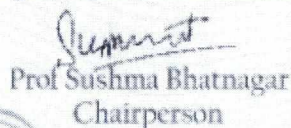 Prof Sushma Bhatnagar
Chairperson